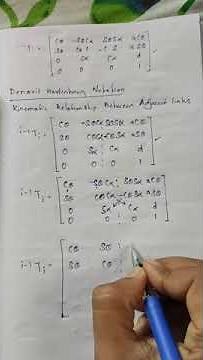 Cθ -SθCα SθSα aCθ
0 Sα Cα d
0 0 0 1
Denavit Hartenberg Notation
Kinematic Relationship Between Adjacent links
i-1Ti = Cθ -SθCα SθSα aCθ
Sθ CθCα -CθSα aSθ
0 Sα Cα d
0 0 0 1
i-1Ti = Cθ -SθCα SθSα aCθ
Sθ CθCα -CθSα aSθ
0 Sα Cα d
0 0 0 1
i-1Ti = Cθ Sθ
Sθ Cθ